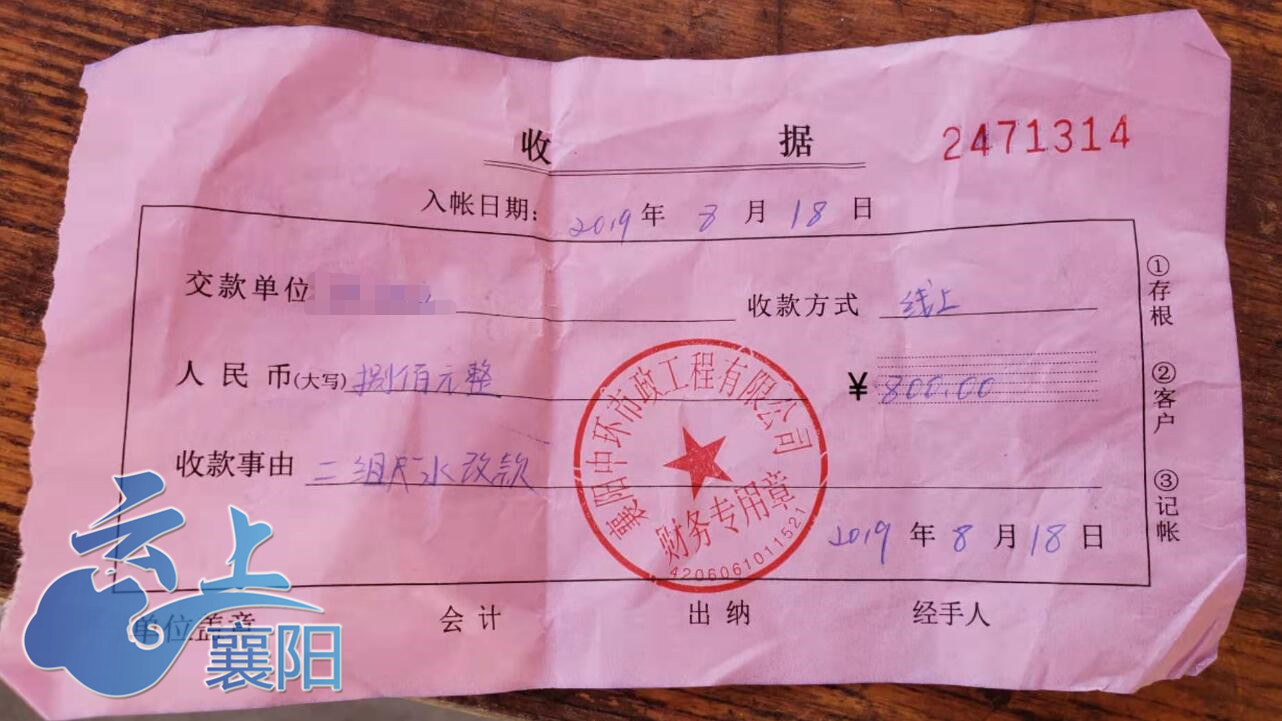 收 据
2471314
入帐日期： 2019 年 8 月 18 日
交款单位 收款方式 线上
人 民 币(大写) 捌佰元整 ¥ 800.00
收款事由 二组 水改款
2019 年 8 月 18 日
单位盖章 会 计 出 纳 经手人
①存根 ②客户 ③记帐
襄阳中环市政工程有限公司
财务专用章
4206061011521
云上
襄阳